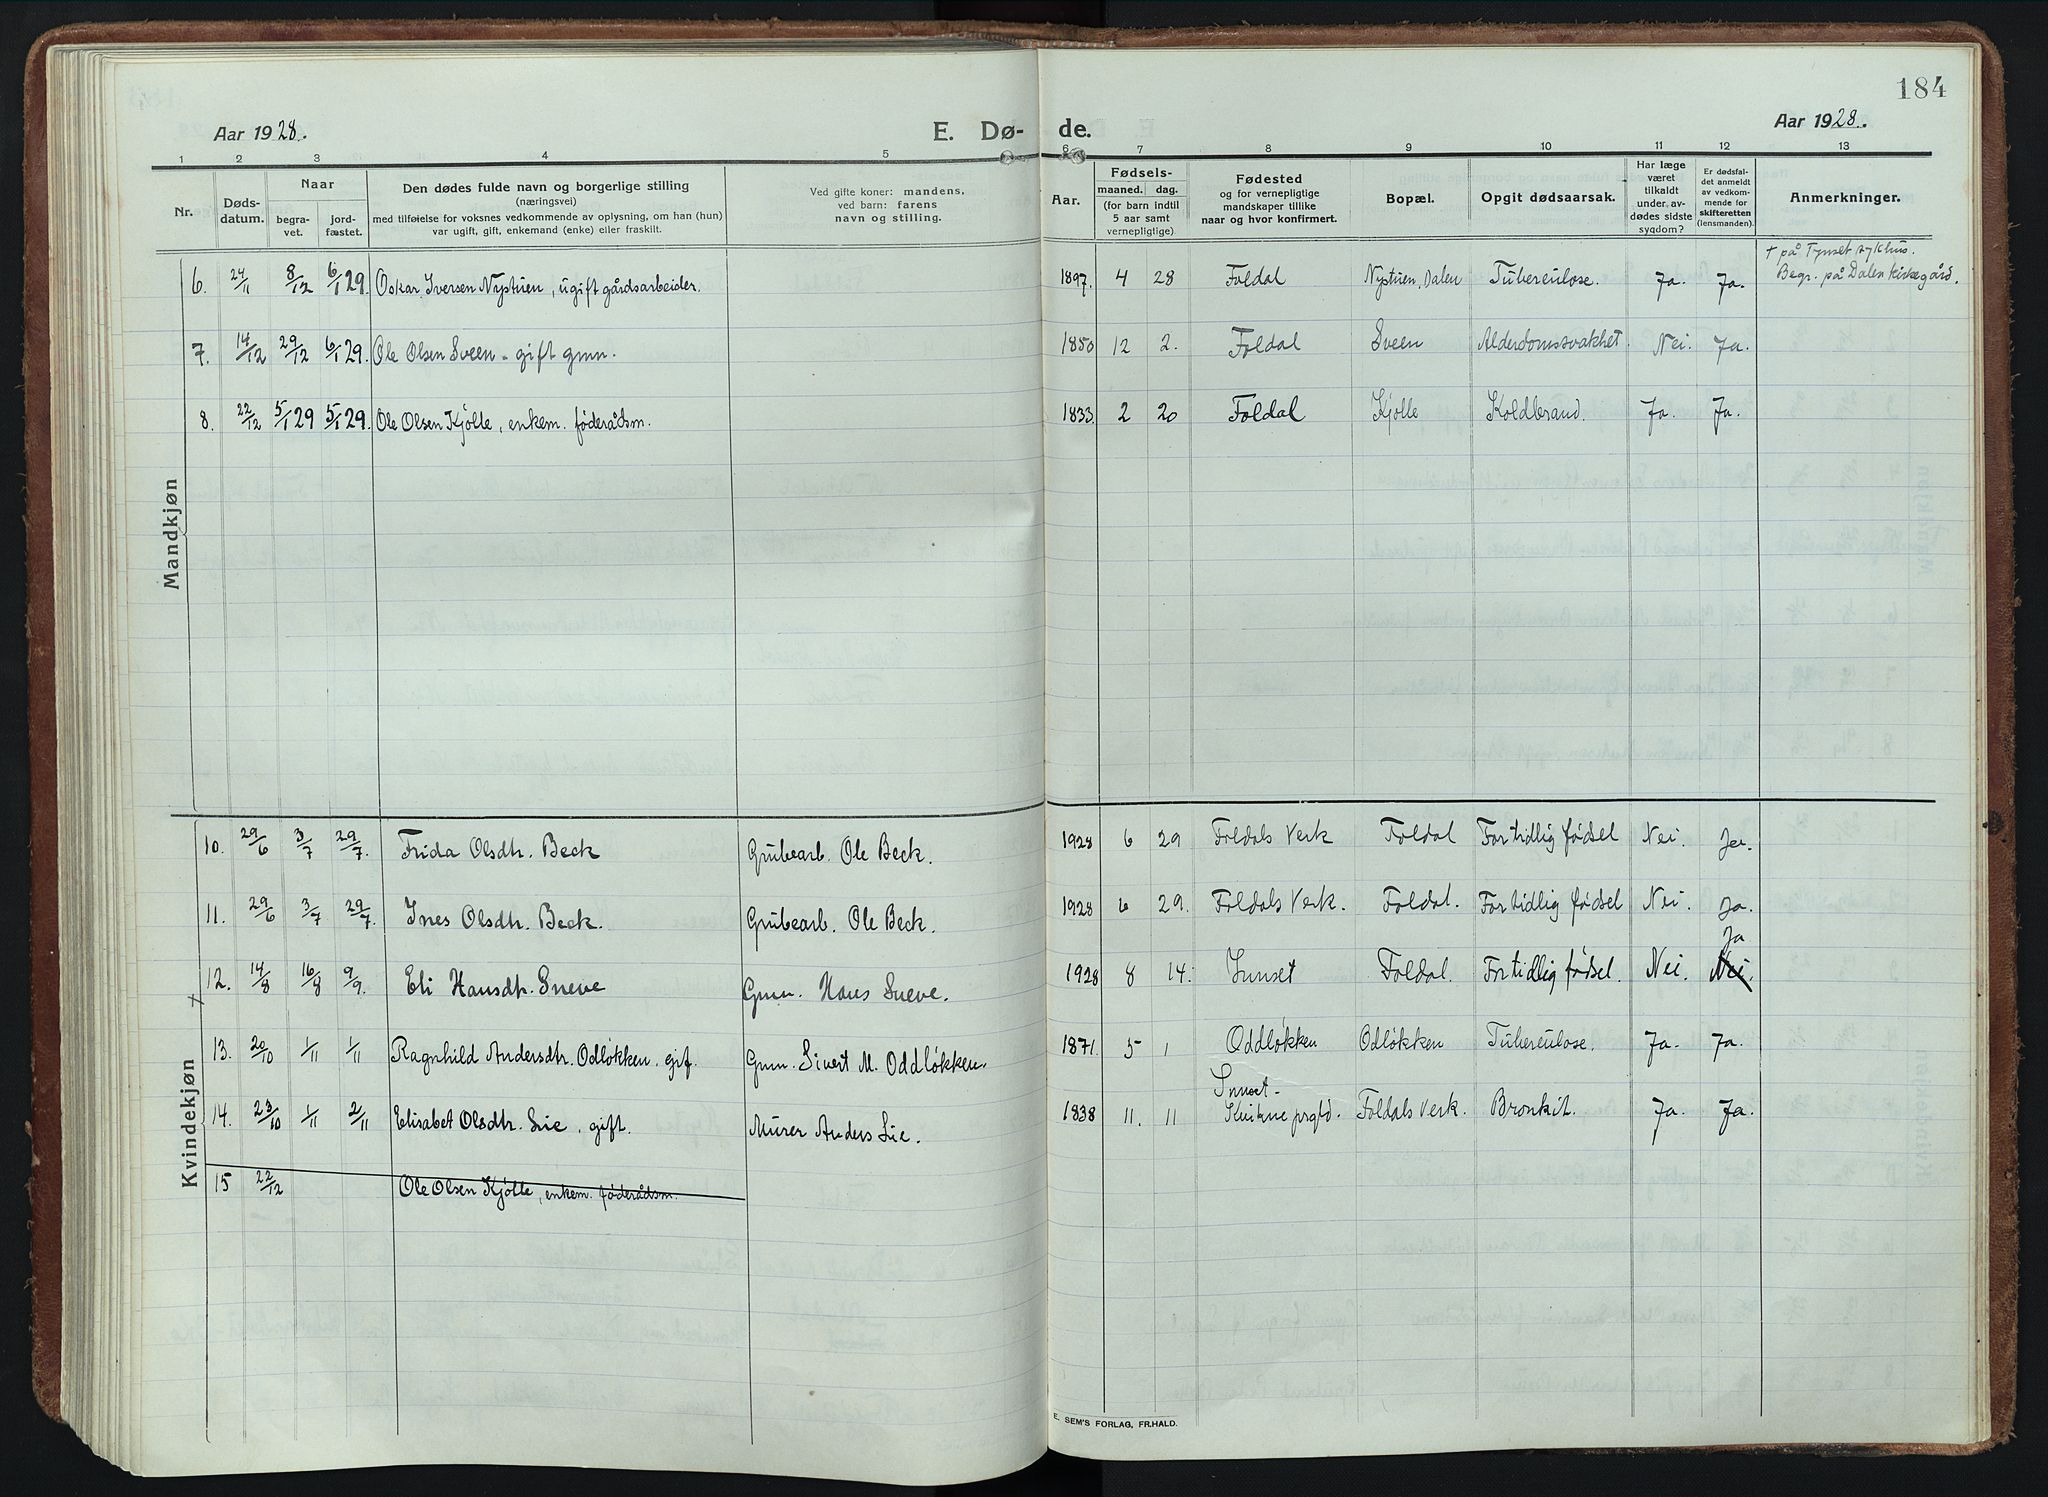 184
Aar 1928.
E. Dø-
de.
Aar 1928.
1 2 3 4 5 6 7 8 9 10 11 12 13
Nr.
Døds-
datum.
Naar
begra-
vet.
jord-
fæstet.
Den dødes fulde navn og borgerlige stilling
(næringsvei)
med tilføielse for voksnes vedkommende av oplysning, om han (hun)
var ugift, gift, enkemand (enke) eller fraskilt.
Ved gifte koner: mandens,
ved barn: farens
navn og stilling.
Aar.
Fødsels-
maaned. dag.
(for barn indtil
5 aar samt
vernepligtige)
Fødested
og for vernepligtige
mandskaper tillike
naar og hvor konfirmert.
Bopæl.
Opgit dødsaarsak.
Har læge
været
tilkaldt
under. av-
dødes sidste
sygdom?
Er dødsfal-
det anmeldt
av vedkom-
mende for
skifteretten
(lensmanden).
Anmerkninger.
Mandkjøn
† på Tynset sykhus.
6. 24/11 8/12 6/1 29. Oskar Iversen Nystuen, ugift gårdsarbeider. 1897. 4 28 Foldal Nystuen, Dalen Tuberculose. Ja. Ja. Begr. på Dalen kirkegård.
7. 14/12 29/12 6/1 29. Ole Olsen Sveen - gift gmn. 1850 12 2. Foldal Sveen Alderdomssvakhet. Nei. Ja.
8. 22/12 5/1 29 5/1 29. Ole Olsen Kjølle, enkem. føderådsm. 1833. 2 20 Foldal Kjølle Koldbrand. Ja. Ja.
Kvindekjøn
10. 29/6 3/7 29/7. Frida Olsdtr. Beck Grubearb. Ole Beck. 1928 6 29 Foldals Verk Foldal For tidlig fødsel Nei. Ja.
11. 29/6 3/7 29/7. Ines Olsdtr. Beck. Grubearb. Ole Beck. 1928 6 29. Foldals Verk. Foldal. For tidlig fødsel Nei. Ja.
Ja
12. 14/8 16/8 9/9. Eli Hansdtr. Sneve Gmn. Hans Sneve. 1928 8 14. Foldal. For tidlig fødsel. Nei. Nei.
13. 20/10 1/11 1/11 Ragnhild Andersdtr. Odløkken. gif. Gmn. Sivert M. Oddløkken. 1871. 5 1 Oddløkken Odløkken Tuberculose. Ja. Ja.
14. 23/10 1/11 2/11 Elisabet Olsdtr. Lie, gift. Murer Anders Lie. 1838 11. 11 Kvikne prgld. Foldals Verk. Bronkit. Ja. Ja.
15 22/12 Ole Olsen Kjølle, enkem. føderådsm.
E. SEM'S FORLAG, FR.HALD.